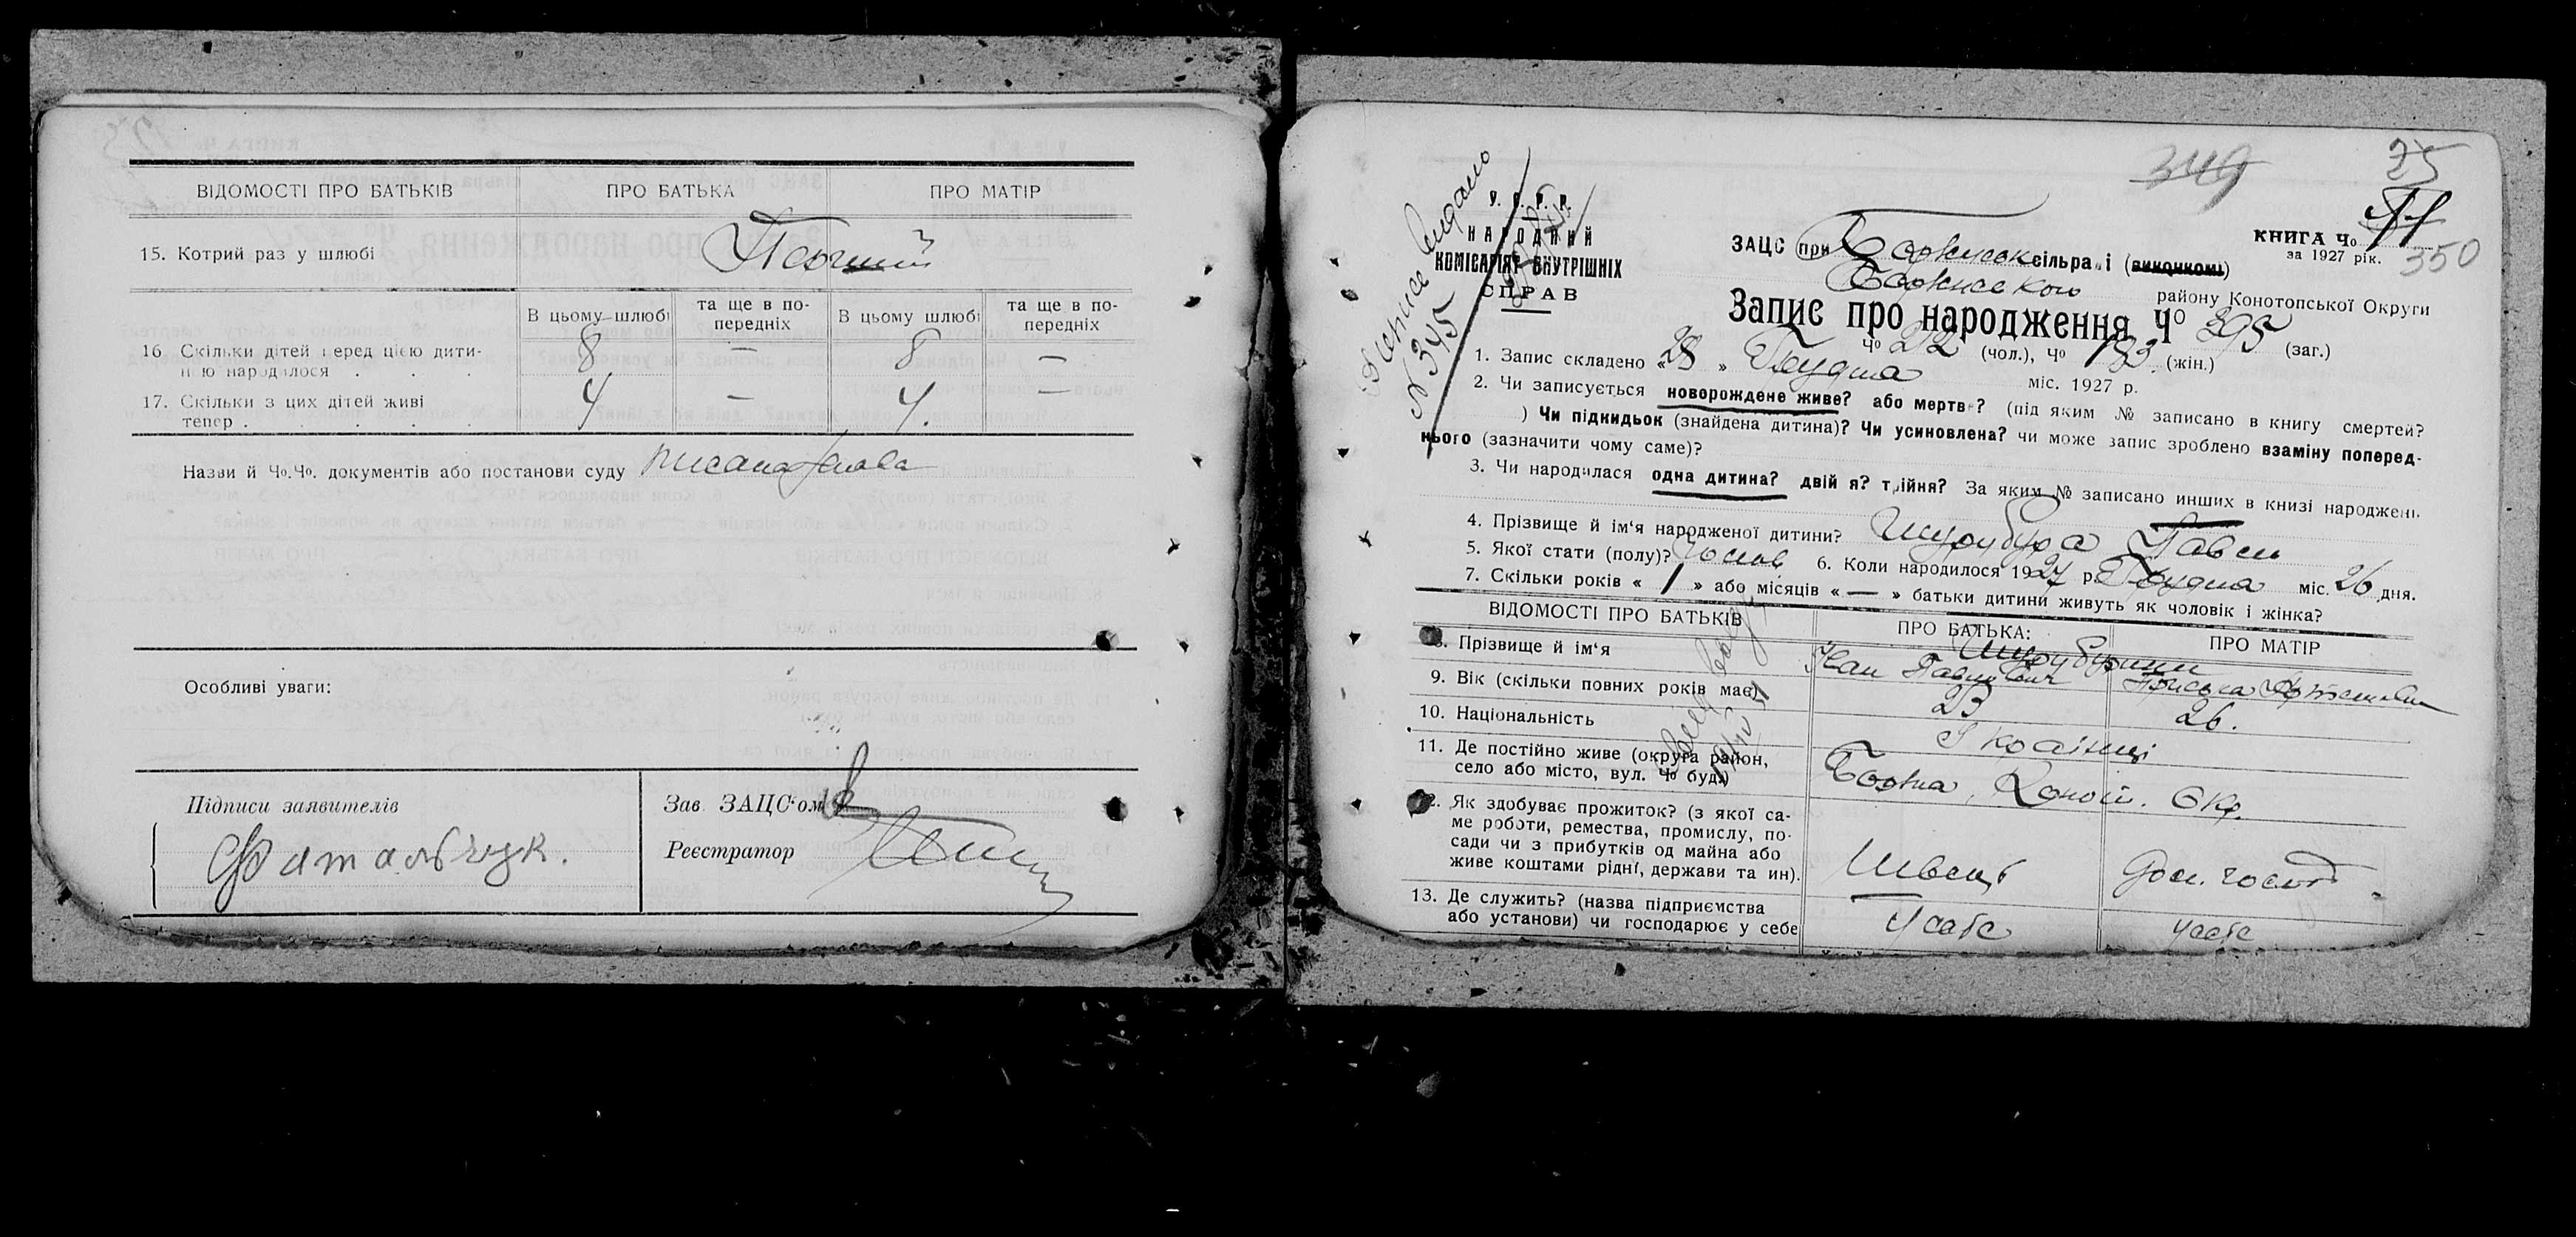 ВІДОМОСТІ ПРО БАТЬКІВ ПРО БАТЬКА ПРО МАТІР
15. Котрий раз у шлюбі Перший
В цьому шлюбі та ще в по-передніх В цьому шлюбі та ще в по-передніх
16. Скільки дітей перед цією дити-
ною народилося . . . 8 — 8 —
17. Скільки з цих дітей живі
тепер . . . . . 4 — 4. —
Назви й Чо.Чо. документів або постанови суду
Особливі уваги:
Підписи заявителів
Зав. ЗАЦС'ом
Реєстратор
349
25
350
У. С. Р. Р.
НАРОДНИЙ
КОМІСАРІЯТ ВНУТРІШНІХ
СПРАВ
видано
№ 345
КНИГА Чо
за 1927 рік.
ЗАЦС при Борзнськ сільраді (виконкомі)
Борзнського району Конотопської Округи
Запис про народження Чо 395 (заг.)
Чо 212 (чол.), Чо 183 (жін.)
1. Запис складено «28» Грудня міс. 1927 р.
2. Чи записується новорождене живе? або мертве? (під яким № записано в книгу смертей?
) Чи підкидьок (знайдена дитина)? Чи усиновлена? чи може запис зроблено взаміну поперед-
нього (зазначити чому саме)?
3. Чи народилася одна дитина? двійня? трійня? За яким № записано инших в книзі народжень
4. Прізвище й ім'я народженої дитини? Шурубура Павел
5. Якої стати (полу)? Чолов 6. Коли народилося 1927 р. Грудня міс. 26 дня.
7. Скільки років «1» або місяців «—» батьки дитини живуть як чоловік і жінка?
ВІДОМОСТІ ПРО БАТЬКІВ ПРО БАТЬКА: ПРО МАТІР
8. Прізвище й ім'я Шурубурини
Іван Павлович
9. Вік (скільки повних років має) 23 26.
10. Національність Українці
11. Де постійно живе (округа район,
село або місто, вул. Чо буд.) Борзна, Коноп. Окр.
12. Як здобуває прожиток? (з якої са-
ме роботи, ремества, промислу, по-
сади чи з прибутків од майна або
живе коштами рідні, держави та ин). Швець Дом. господ.
13. Де служить? (назва підприємства
або установи) чи господарює у себе У себе У себе